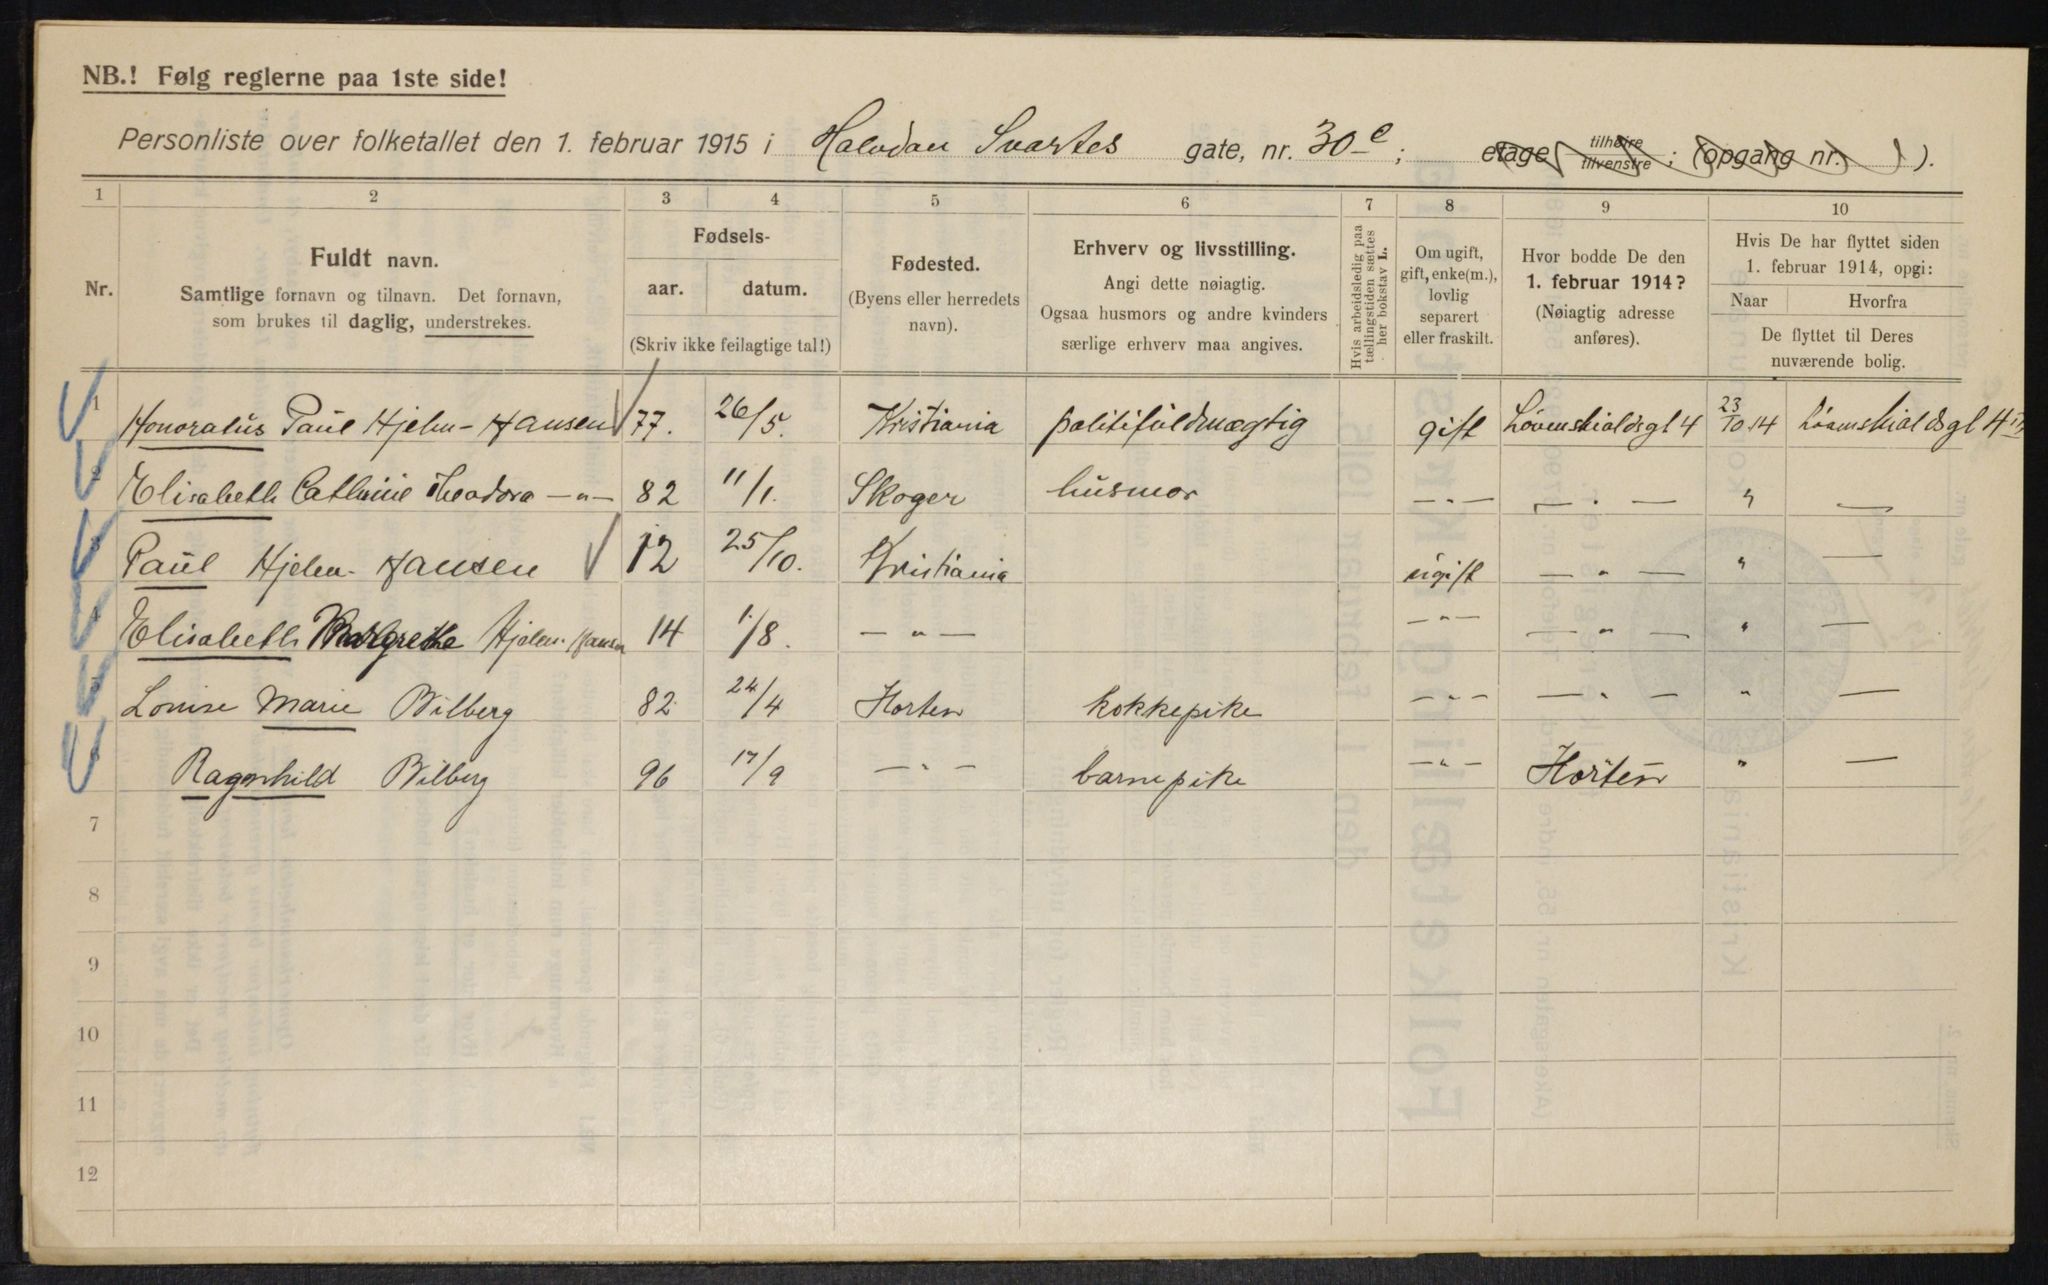 NB.! Følg reglerne paa 1ste side!
Personliste over folketallet den 1. februar 1915 i Halvdan Svartes gate, nr. 30 c; etage tilhøire tilvenstre; (opgang nr. ).
1 2 3 4 5 6 7 8 9 10
Nr. Fuldt navn. Samtlige fornavn og tilnavn. Det fornavn, som brukes til daglig, understrekes.
Fødsels- aar. datum. (Skriv ikke feilagtige tal!)
Fødested. (Byens eller herredets navn).
Erhverv og livsstilling. Angi dette nøiagtig. Ogsaa husmors og andre kvinders særlige erhverv maa angives.
Hvis arbeidsledig paa tællingstiden sættes her bokstav L.
Om ugift, gift, enke(m.), lovlig separert eller fraskilt.
Hvor bodde De den 1. februar 1914? (Nøiagtig adresse anføres).
Hvis De har flyttet siden 1. februar 1914, opgi: Naar Hvorfra De flyttet til Deres nuværende bolig.
1 Honoratus Paul Hjelm-Hansen 77. 26/5. Kristiania politifuldmægtig gift Løvenskioldsgt 4 23/10 14 Løvenskioldsgt 4
2 Elisabeth Cathrine Theodora —„— 82 11/1. Skoger husmor —„— —„— „ —
3 Paul Hjelm-Hansen 12 25/10. Kristiania ugift —„— „ —
4 Elisabeth Margrethe Hjelm-Hansen 14 1/8. —„— —„— —„— „ —
5 Louise Marie Bilberg 82 24/4 Horten kokkepike —„— —„— „ —
6 Ragnhild Bilberg 96 17/9 —„— barnepike —„— Horten „ —
7
8
9
10
11
12